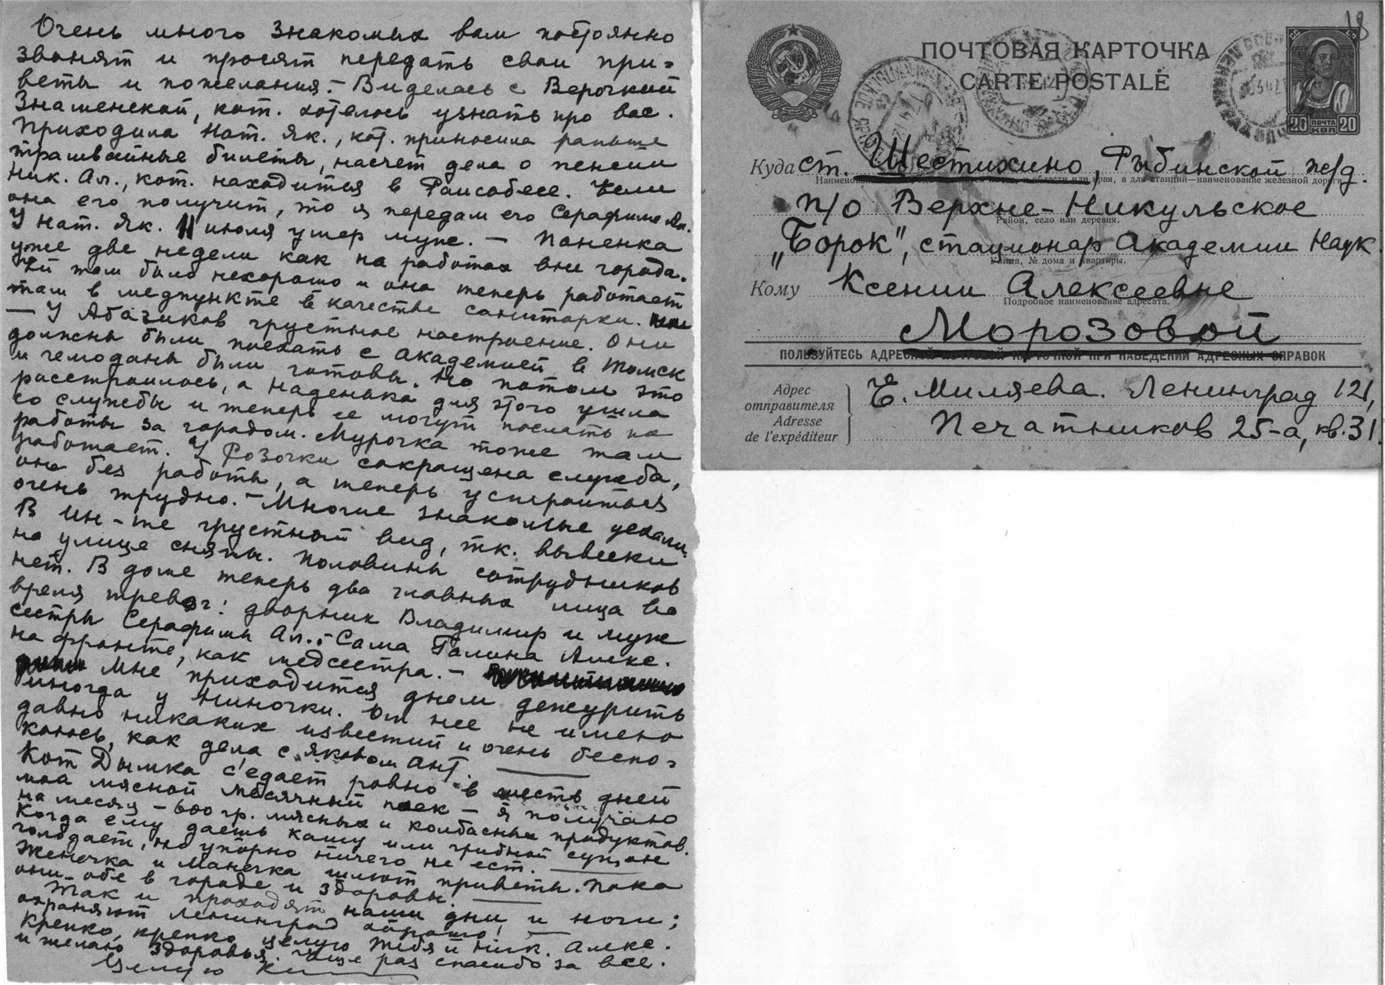 Очень много знакомых вам постоянно
звонят и просят передать свои при-
веты и пожелания. – Виделась с Верочкой
Знаменской, кот. хотелось узнать про вас.
Приходила Нат. Як., кот. приносила раньше
трамвайные билеты, насчет дела о пенсии
Ник. Ал., кот. находится в Райсобесе. Если
она его получит, то я передам его Серафиме Ал.
У Нат. Як. 11 июля умер муж. – Паненка
уже две недели как на работах вне города.
Ей там было нехорошо и она теперь работает
там в медпункте в качестве санитарки.
– У Абазиков грустное настроение. Они
должны были поехать с академией в Томск
и чемоданы были готовы. Но потом это
расстроилось, а Наденька для этого ушла
со службы и теперь ее могут послать на
работы за городом. Мурочка тоже там
работает. У Розочки сокращена служба,
она без работы, а теперь устроиться
очень трудно. – Многие знакомые уехали.
В Ин-те грустный вид, т.к. вывески
на улице сняты. Половины сотрудников
нет. В доме теперь два главных лица во
время тревог: дворник Владимир и муж
сестры Серафимы Ал. – Сама Галина Алекс.
на фронте, как медсестра. –
Мне приходится днем дежурить
иногда у Ниночки. От нее не имею
давно никаких известий и очень беспо-
коюсь, как дела с Яковом Ант.
Кот Дымка с'едает ровно в шесть дней
мой мясной месячный паек – я получаю
на месяц – 600 гр. мясных и колбасных продуктов.
Когда ему даешь кашу или грибной суп, он
голодает, но упорно ничего не ест.
Женечка и Манечка шлют приветы. Пока
они обе в городе и здоровы.
Так и проходят наши дни и ночи;
охраняют Ленинград хорошо!
Крепко, крепко целую тебя и Ник. Алекс.
и желаю здоровья. Еще раз спасибо за все.
Целую
18
ПОЧТОВАЯ КАРТОЧКА
CARTE POSTALE
СС
ПОЧТА
20 КОП 20
Куда ст. Шестихино, Рыбинской ж/д.
Наименование железной дороги
п/о Верхне-Никульское
Район, село или деревня.
„Борок", стационар Академии Наук.
Улица, № дома и квартиры.
Кому Ксении Алексеевне
Подробное наименование адресата.
Морозовой
ПОЛЬЗУЙТЕСЬ АДРЕСНОЙ КАРТОЧКОЙ ПРИ НАВЕДЕНИИ АДРЕСНЫХ СПРАВОК
Адрес
отправителя
Adresse
de l'expéditeur
Е. Миляева. Ленинград 121,
Печатников 25-а, кв. 31.